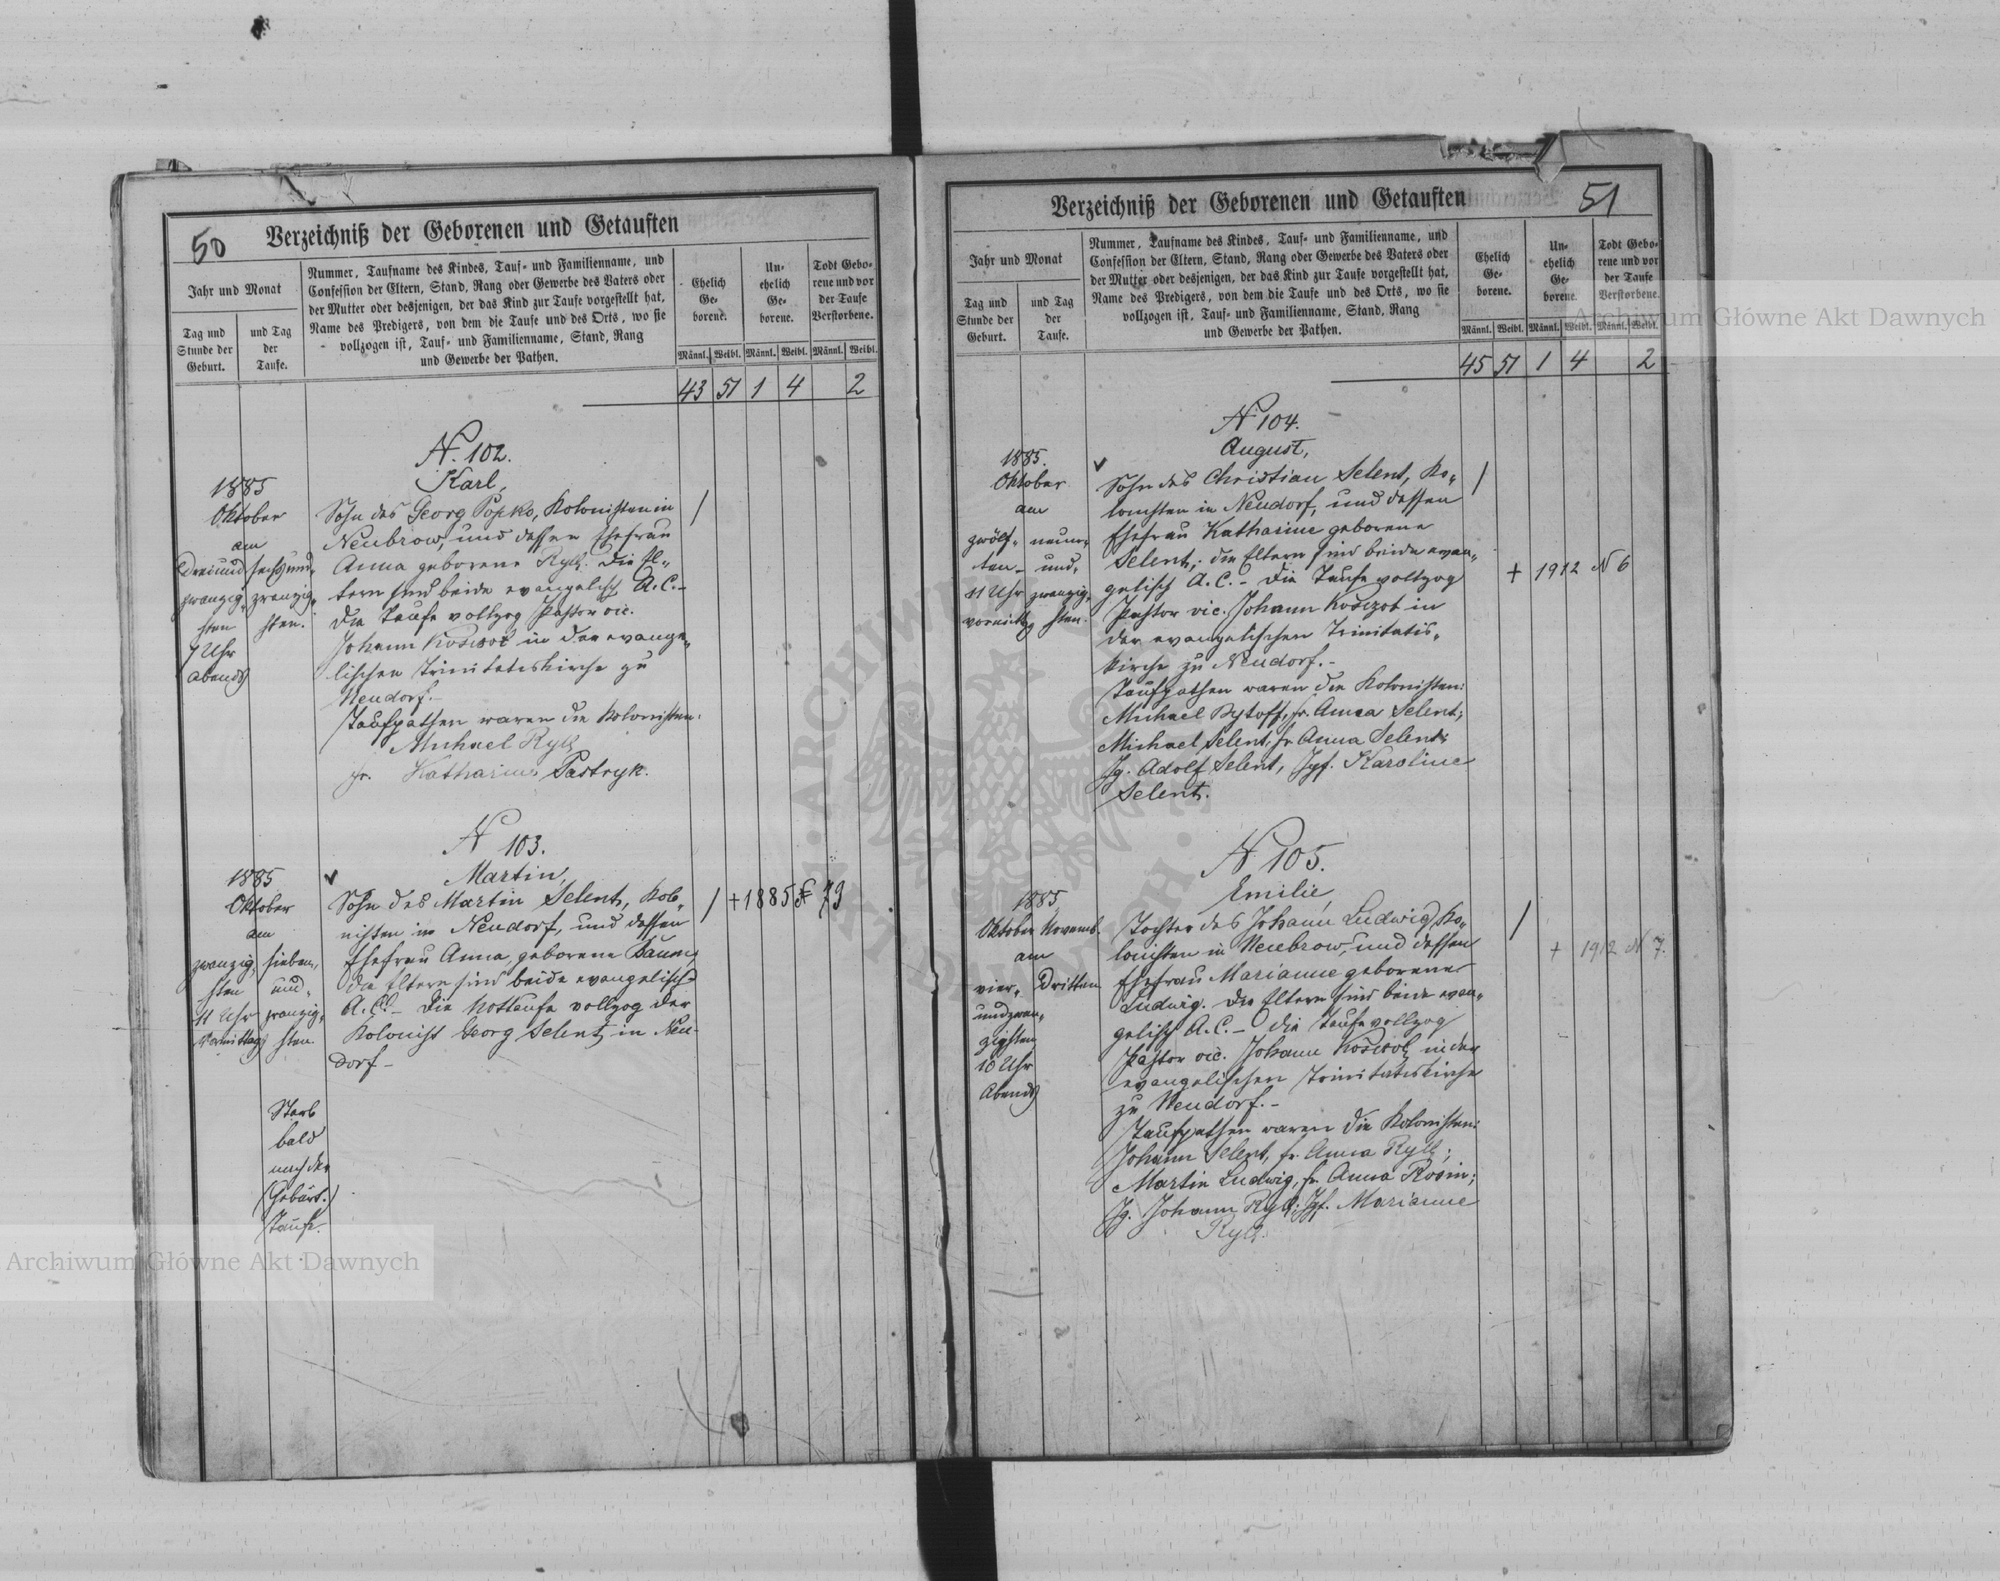 50
Verzeichniß der Geborenen und Getauften
Jahr und Monat
Tag und Stunde der Geburt.
und Tag der Taufe.
Nummer, Taufname des Kindes, Tauf- und Familienname, und
Confession der Eltern, Stand, Rang oder Gewerbe des Vaters oder
der Mutter oder desjenigen, der das Kind zur Taufe vorgestellt hat,
Name des Predigers, von dem die Taufe und des Orts, wo sie
vollzogen ist, Tauf- und Familienname, Stand, Rang
und Gewerbe der Pathen.
Ehelich Ge- borene.
Un- ehelich Ge- borene.
Todt Gebo- rene und vor der Taufe Verstorbene.
Männl. Weibl. Männl. Weibl. Männl. Weibl.
43 51 1 4 2
N. 102.
Karl,
1885
Oktober
am
Dreiund
zwanzig-
sten
7 Uhr
Abends
sechsund-
zwanzig-
sten.
Sohn des Georg Popko, Kolonisten in
Neubrow, und dessen Ehefrau
Anna geborene Ryll. Die El-
tern sind beide evangelisch A. C. -
Die Taufe vollzog Pastor vic.
Johann in der evange-
lischen Trinitatiskirche zu
Neudorf. -
Taufpathen waren die Kolonisten:
Michael Ryll
fr. Katharina Pastryk.
N 103.
Martin,
1885
Oktober
am
zwanzig-
sten
11 Uhr
Vormittag
sieben-
und-
zwanzig-
sten.
Sohn des Martin Selent, Kolo-
nisten in Neudorf, und dessen
Ehefrau Anna, geborene Baum,
die Eltern sind beide evangelisch
A. C. - Die Nottaufe vollzog der
Kolonist Georg Selent in Neu-
dorf -
/ + 1885 N 79
Starb
bald
nach der
(Geburt.)
Taufe.
51
Verzeichniß der Geborenen und Getauften
Jahr und Monat
Tag und Stunde der Geburt.
und Tag der Taufe.
Nummer, Taufname des Kindes, Tauf- und Familienname, und
Confession der Eltern, Stand, Rang oder Gewerbe des Vaters oder
der Mutter oder desjenigen, der das Kind zur Taufe vorgestellt hat,
Name des Predigers, von dem die Taufe und des Orts, wo sie
vollzogen ist, Tauf- und Familienname, Stand, Rang
und Gewerbe der Pathen.
Ehelich Ge- borene.
Un- ehelich Ge- borene.
Todt Gebo- rene und vor der Taufe Verstorbene.
Männl. Weibl. Männl. Weibl. Männl. Weibl.
45 51 1 4 2
N 104.
August,
1885.
Oktober
am
zwölf-
ten
11 Uhr
vormittg
neun-
und-
zwanzig-
sten.
Sohn des Christian Selent, Ko-
lonisten in Neudorf, und dessen
Ehefrau Katharine geborene
Selent, die Eltern sind beide evan-
gelisch A. C. - Die Taufe vollzog
Pastor vic. Johann in
der evangelischen Trinitatis-
kirche zu Neudorf. -
Taufpathen waren die Kolonisten:
Michael Rytoff, fr. Anna Selent;
Michael Selent, fr Anna Selent;
Jg. Adolf Selent, Jgf. Karoline
Selent.
+ 1912 N 6
N 105.
Emilie,
1885
Oktober Novemb.
am
vier-
undzwan-
zigsten
10 Uhr
Abends
Dritten
Tochter des Johann Ludwig, Ko-
lonisten in Neubrow, und dessen
Ehefrau Marianne geborene
Ludwig. Die Eltern sind beide evan-
gelisch A. C. - Die Taufe vollzog
Pastor vic. Johann in der
evangelischen Trinitatiskirche
zu Neudorf. -
Taufpathen waren die Kolonisten:
Johann Selent, fr. Anna Ryll;
Martin Ludwig, fr. Anna Rosin;
Jg. Johann Ryll; Jgf. Marianne
Ryll.
+ 1912 N 7.
Archiwum Główne Akt Dawnych
Archiwum Główne Akt Dawnych